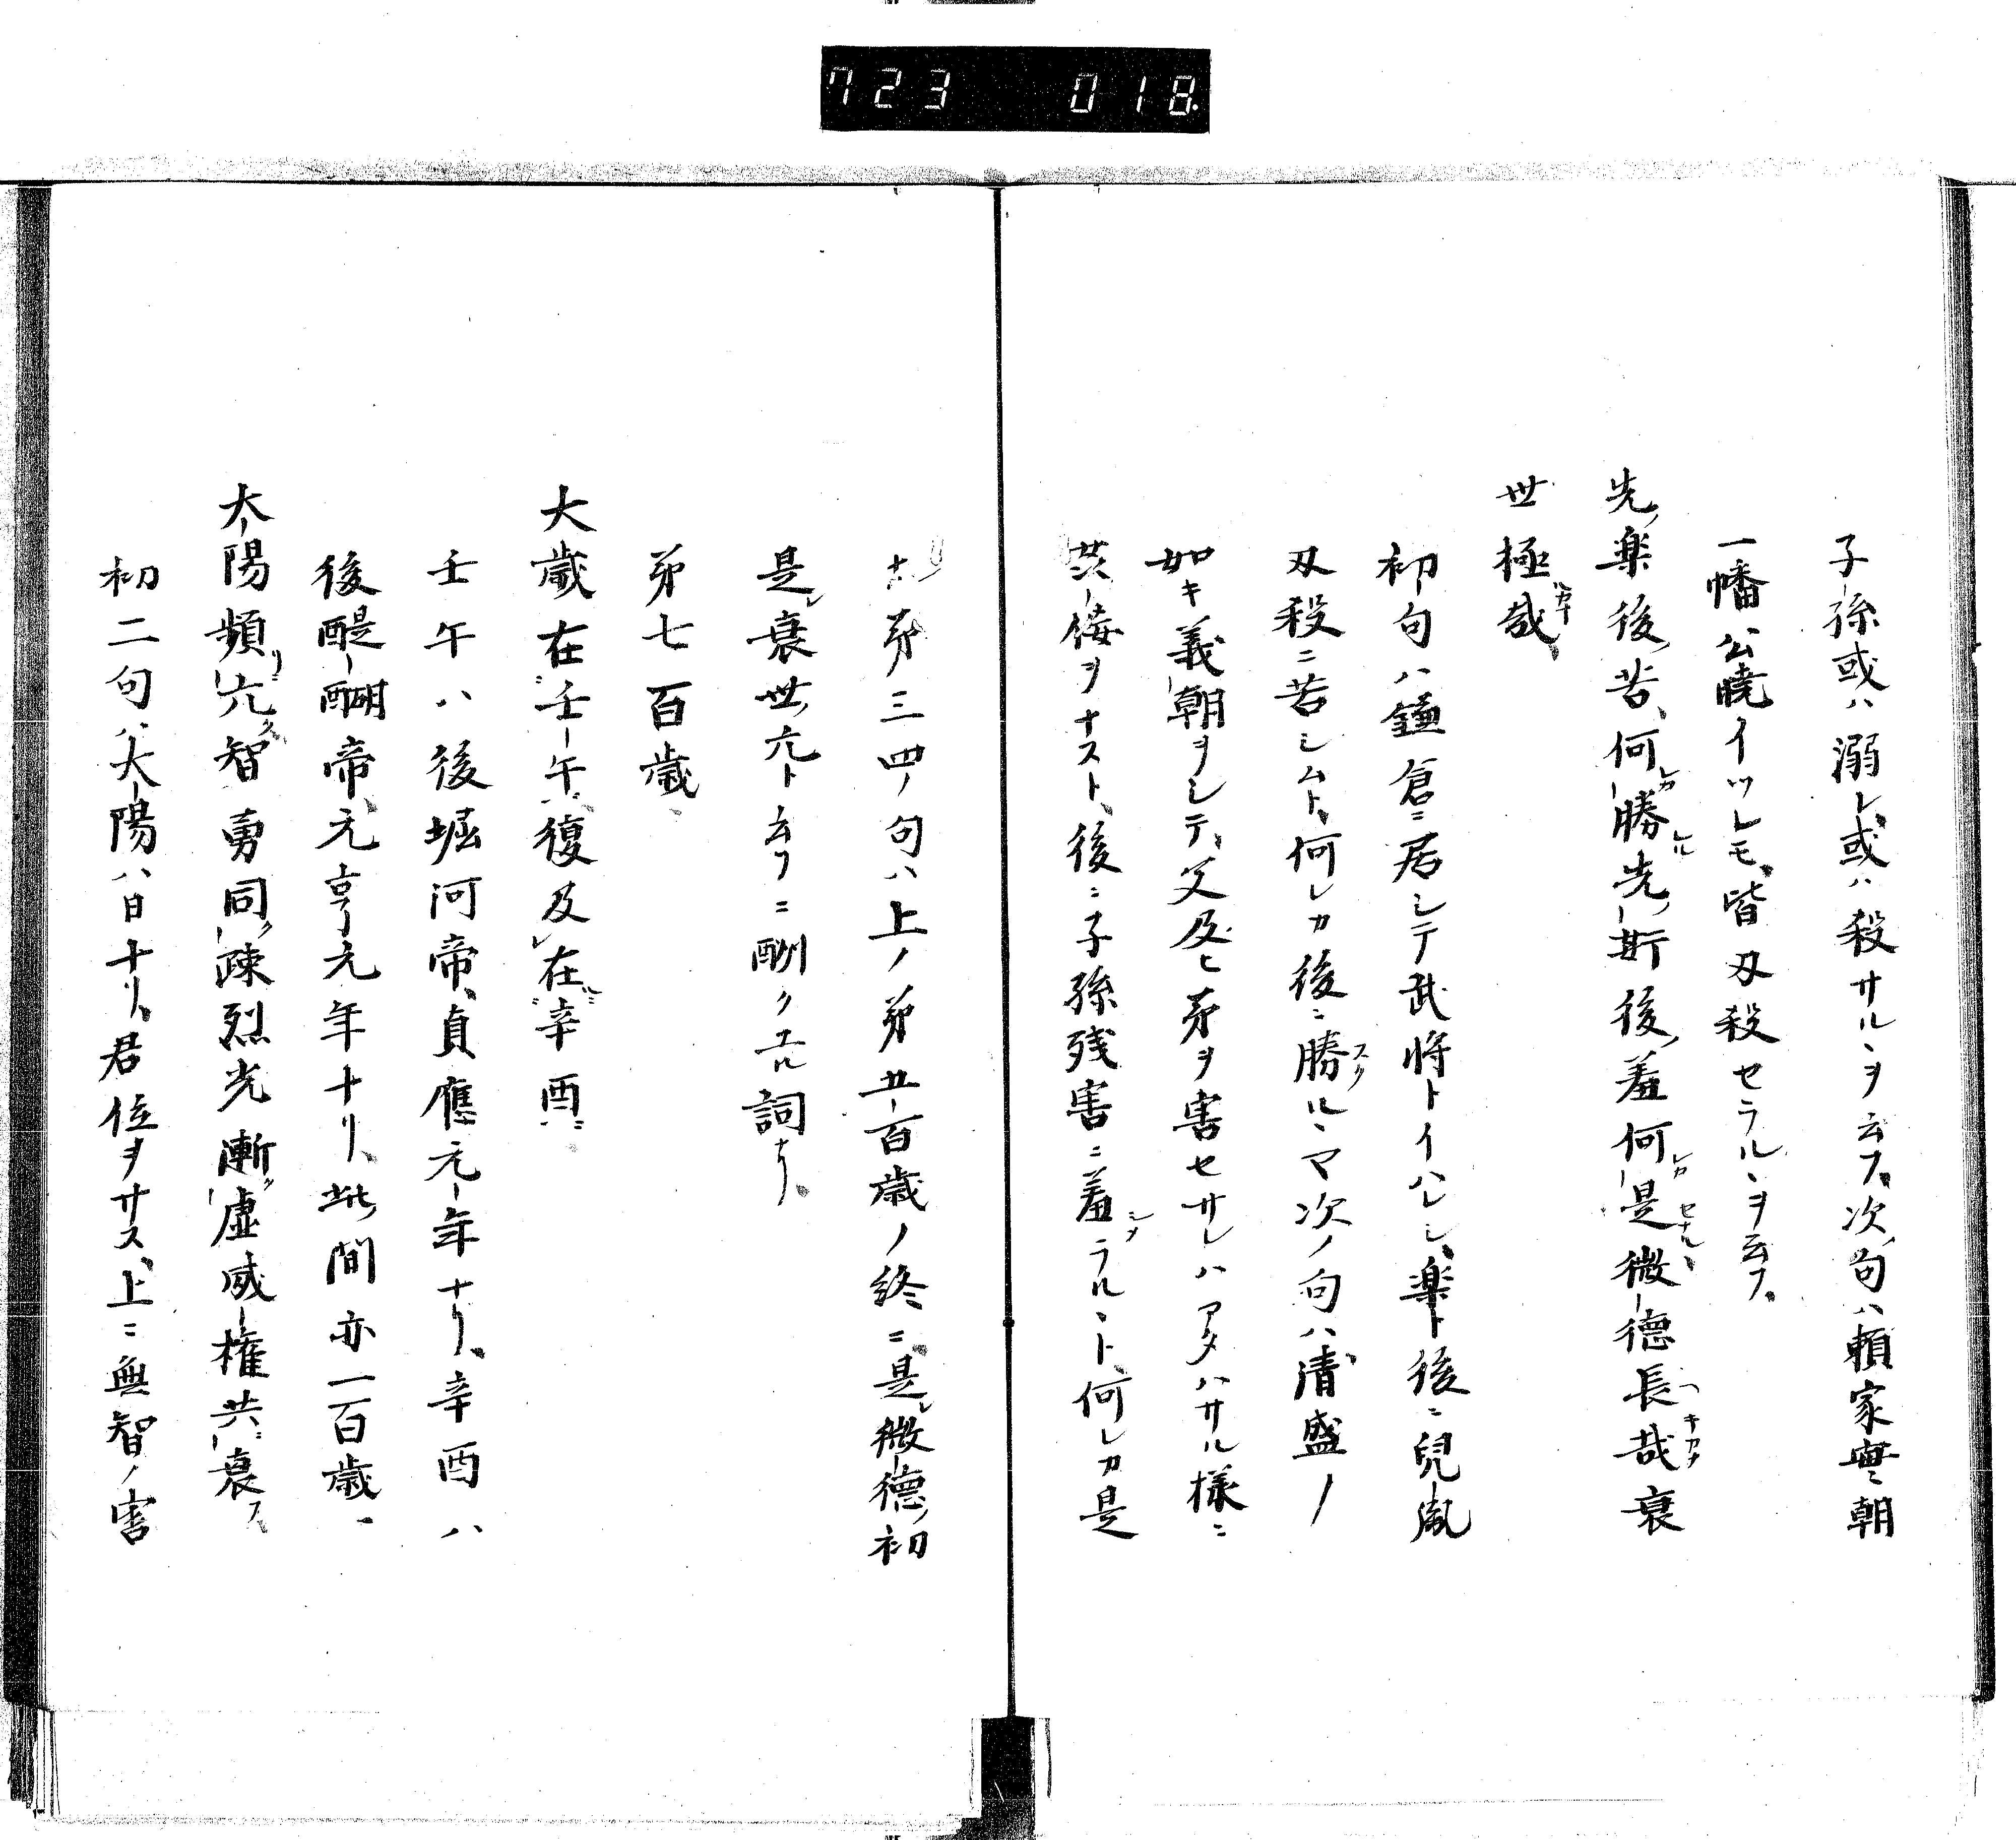 723 018
子孫或ハ溺レ或ハ殺サルヽヲ云フ次句ハ頼家実朝
一幡公暁イツレモ皆刃殺セラルヽヲ云フ
先楽後苦何勝先斯後羞何是微徳長哉衰
世極哉
初句ハ鎌倉ニ居シテ武将トイハレシ楽ト後ニ児胤
刃殺ニ苦シムト何レカ後ニ勝ルヽマ次ノ句ハ清盛ノ
如キ義朝ヲシテ父及ヒ弟ヲ害セサレハアタハサル様ニ
共倭ヲナスト後ニ子孫残害ニ羞ラルヽト何レカ是
第三四ノ句ハ上ノ第五百歳ノ終ニ是微徳初
是衰世亢ト云フニ酬クエル詞ナリ
第七百歳
大歳在壬午復及在辛酉
壬午ハ後堀河帝貞應元年ナリ辛酉ハ
後醍醐帝元亨元年ナリ此間亦一百歳
太陽頻亢智勇同疎烈光漸虚威権共衰
初二句ハ太陽ハ日ナリ君位ヲサス上ニ無智ノ害